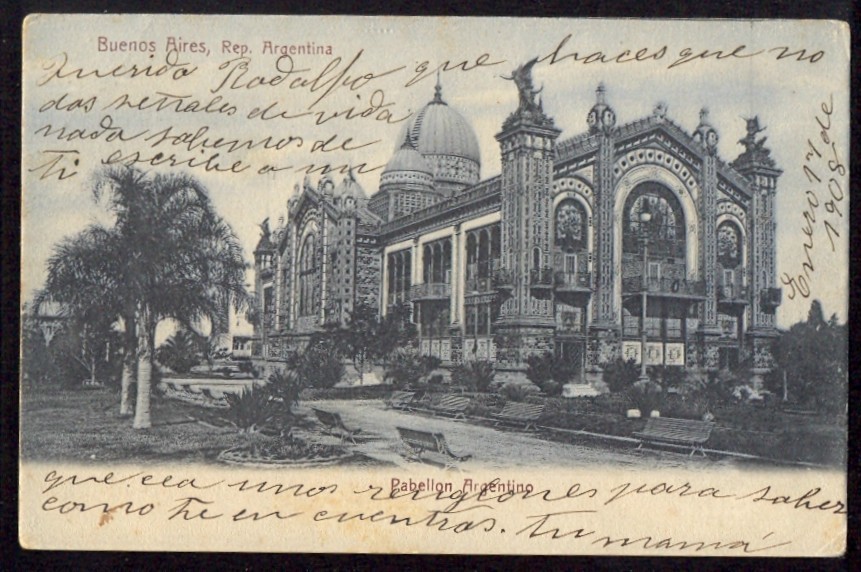 Buenos Aires, Rep. Argentina
Querido Rodolfo que haces que no
das señales de vida
nada sabemos de
ti escribe a un
Enero 17 de
1908
que cea unos renglones para saber
Pabellon Argentino
como te en cuentras. Tu
mamá